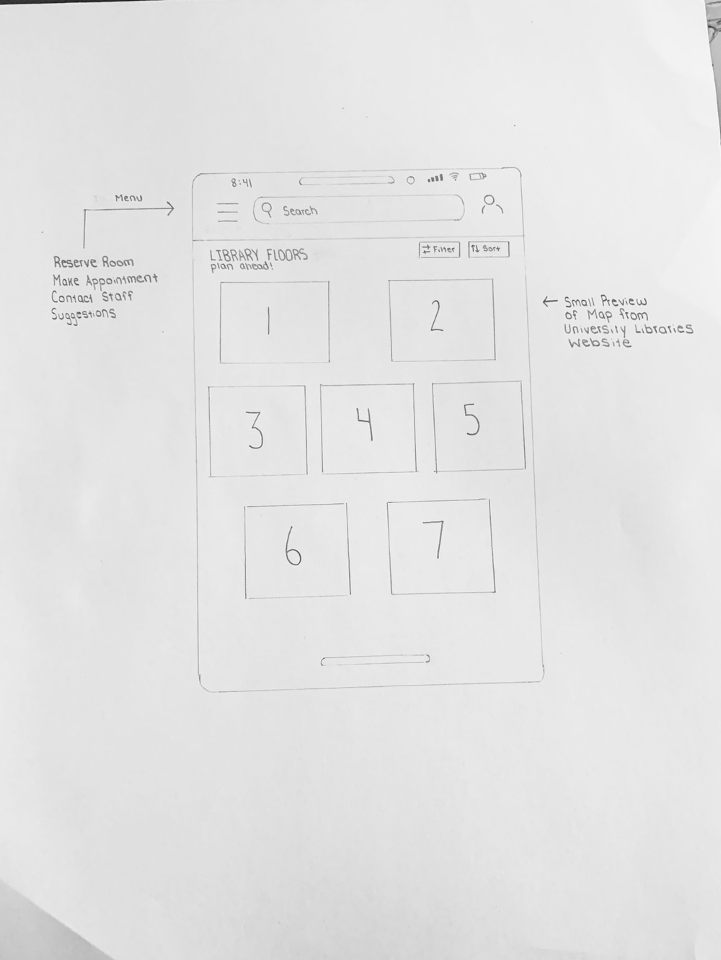 8:41
Menu
Search
Reserve Room
Make Appointment
Contact Staff
Suggestions
LIBRARY FLOORS
plan ahead!
Filter
Sort
1
2
← Small Preview
of Map from
University Libraries
Website
3
4
5
6
7